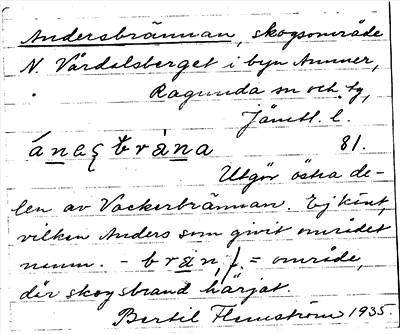 Andersbrännan, skogsområde
N. Vårdalsberget i byn Ammer,
Ragunda sn och tg,
Jämtl. l.
81.
Utgör östra de-
len av Vackerbrännan. Ej känt,
vilken Anders som givit området
namn. - brän, f. = område,
där skogsbrand härjat.
Bertil Flemström 1935